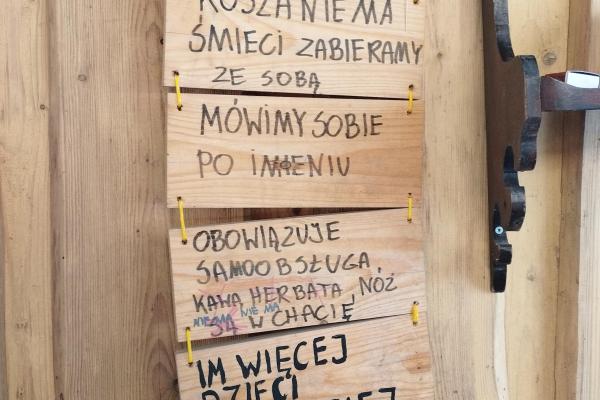 KOSZA NIE MA
ŚMIECI ZABIERAMY
ZE SOBĄ
MÓWIMY SOBIE
PO IMIENIU
OBOWIĄZUJE
SAMOOBSŁUGA
KAWA, HERBATA, NÓŻ
NIE MA NIE MA
SĄ W CHACIE
IM WIĘCEJ
DZIECI